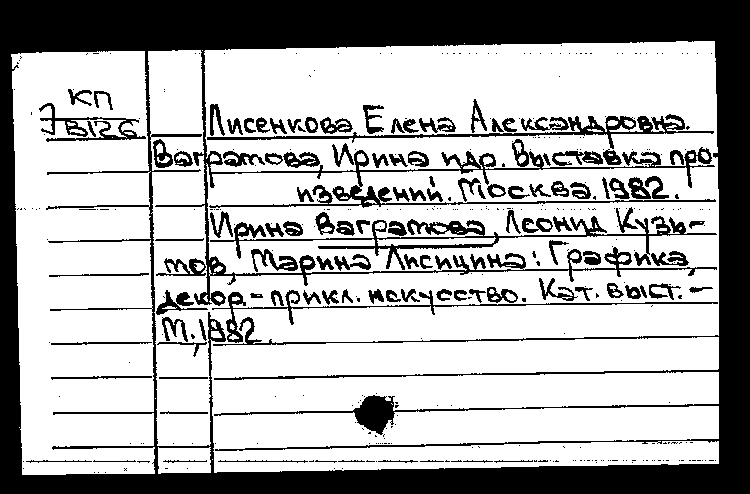 КП
B126
Лисенкова, Елена Александровна.
Ваграмова, Ирина идр. Выставка про-
изведений. Москва. 1982.
Ирина Ваграмова, Леонид Кузь-
мов, Марина Лисицина: Графика,
декор.-прикл. искусство. Кат. выст.-
М., 1982.